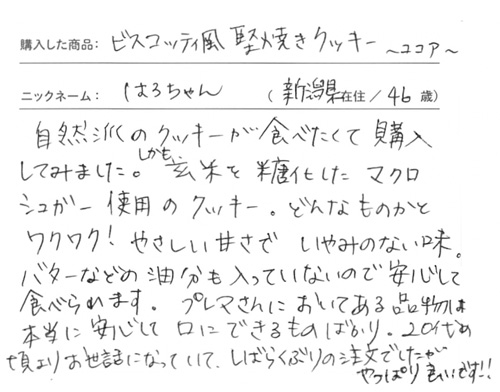 購入した商品: ビスコッティ風 堅焼きクッキー ～ココア～
ニックネーム: はるちゃん (新潟県在住/46歳)
自然派のクッキーが食べたくて購入
してみました。しかも、玄米を糖化したマクロ
シュガー使用のクッキー。どんなものかと
ワクワク！やさしい甘さでいやみのない味。
バターなどの油分も入っていないので安心して
食べられます。プレマさんにおいてある品物は
本当に安心して口にできるものばかり。20代の
頃よりお世話になっていて、しばらくぶりの注文でしたが
やっぱり良いです!!